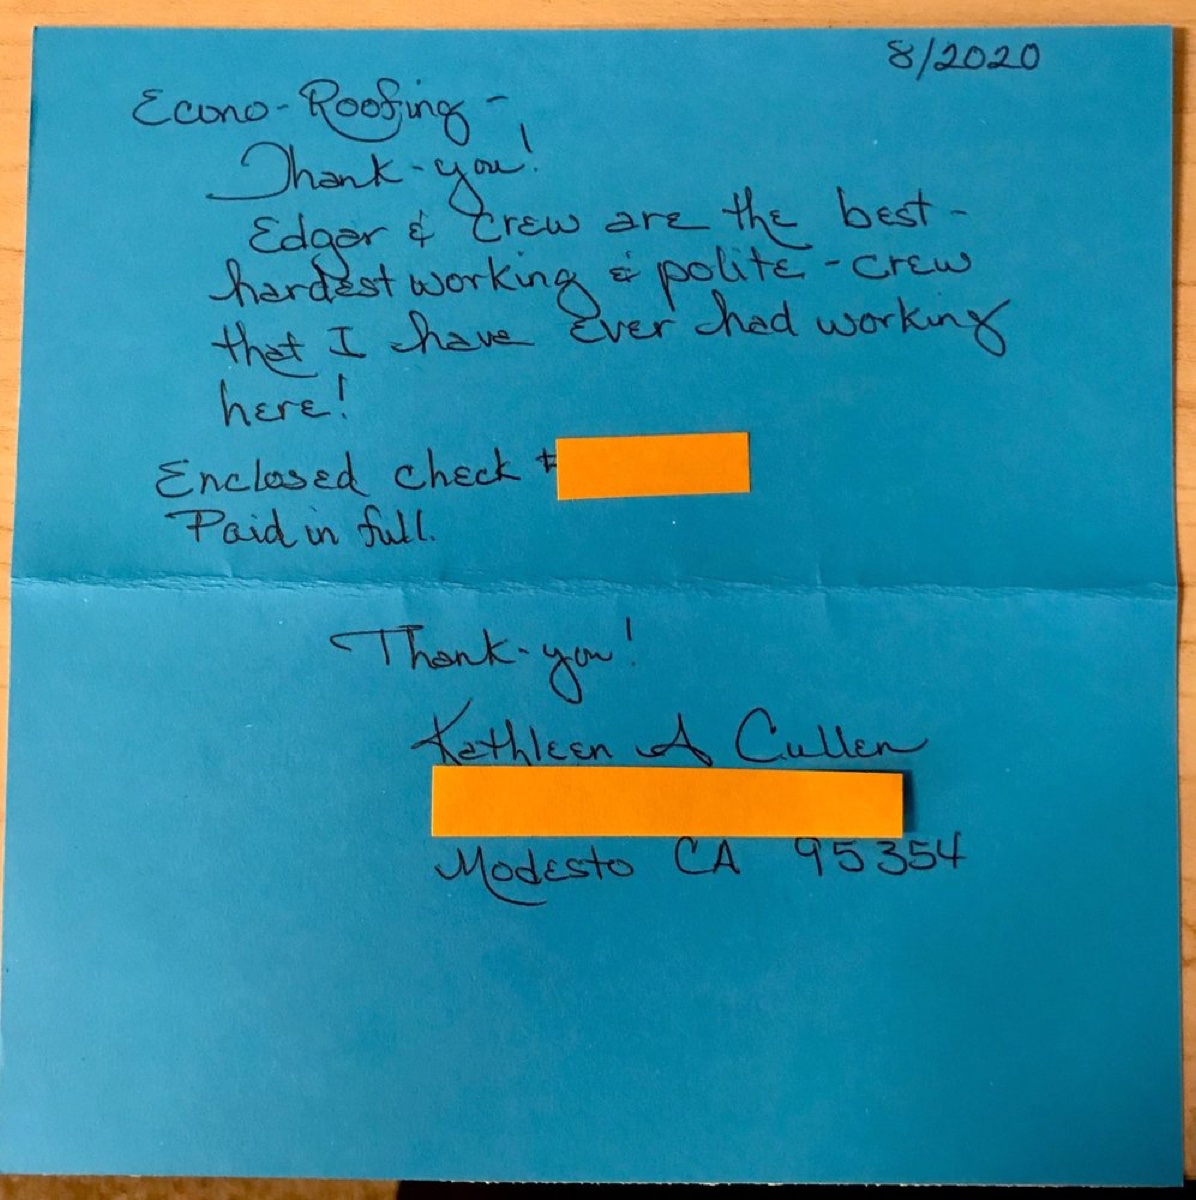 8/2020
Econo-Roofing-
Thank-you!
Edgar & crew are the best-
hardest working & polite-crew
that I have ever had working
here!
Enclosed check #
Paid in full.
Thank-you!
Kathleen A Cullen
Modesto CA 95354